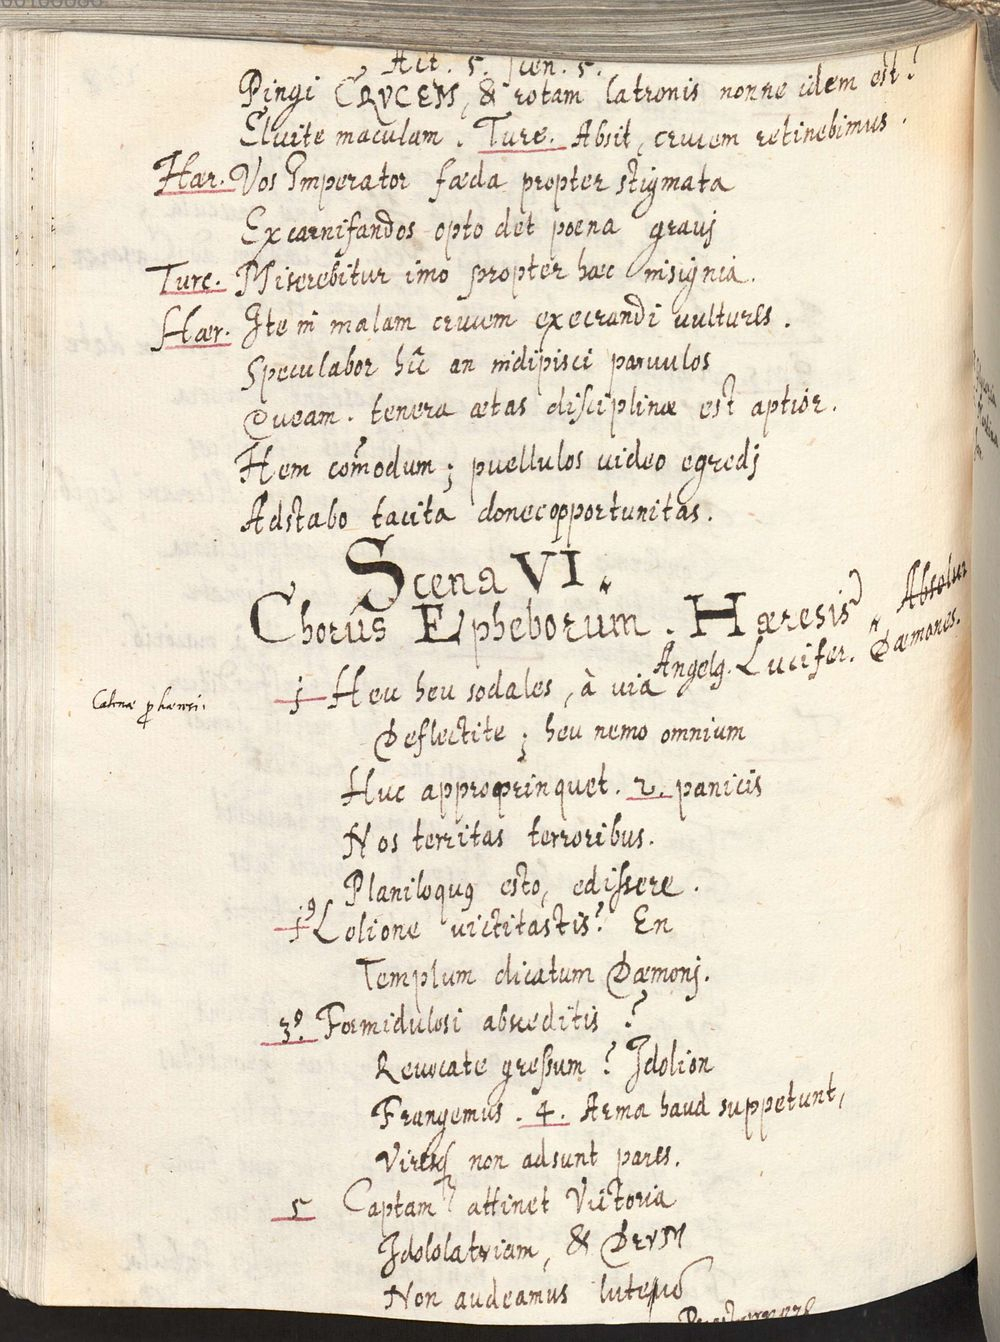 Act. 5. scen. 5.
Pingi CRVCEM, & rotam latronis nonne idem est?
Eluite maculam. Turc. Absit, crucem retinebimus.
Hær. Vos Imperator fæda propter stigmata
Excarnifandos opto det poena gravj
Turc. Miserebitur imo propter hæc insignia.
Hær. Ite in malam crucem execrandi vultures.
Speculabor hûc an indipisci parvulos
Queam. tenera ætas disciplinæ est aptior.
Hem com̄odum; puellulos video egredj
Adstabo tacita donec opportunitas.
Scena VI.
Chorus Epheborum. Hæresis
Angelg. Lucifer. Dæmones.
Catenæ
1 Heu heu sodales, à via
Deflectite; heu nemo omnium
Huc approprinquet. 2. panicis
Nos territas terroribus.
Planiloquus esto, edissere.
1⁹ Lolione victitastis? En
Templum dicatum Dæmonj.
3⁹. Formidulosi absceditis?
Revocate gressum? Idolion
Frangemus. 4. Arma haud suppetunt,
Viresq; non adsunt pares.
5 Captam attinet Victoria
Idololatriam, & DEVM
Non audeamus